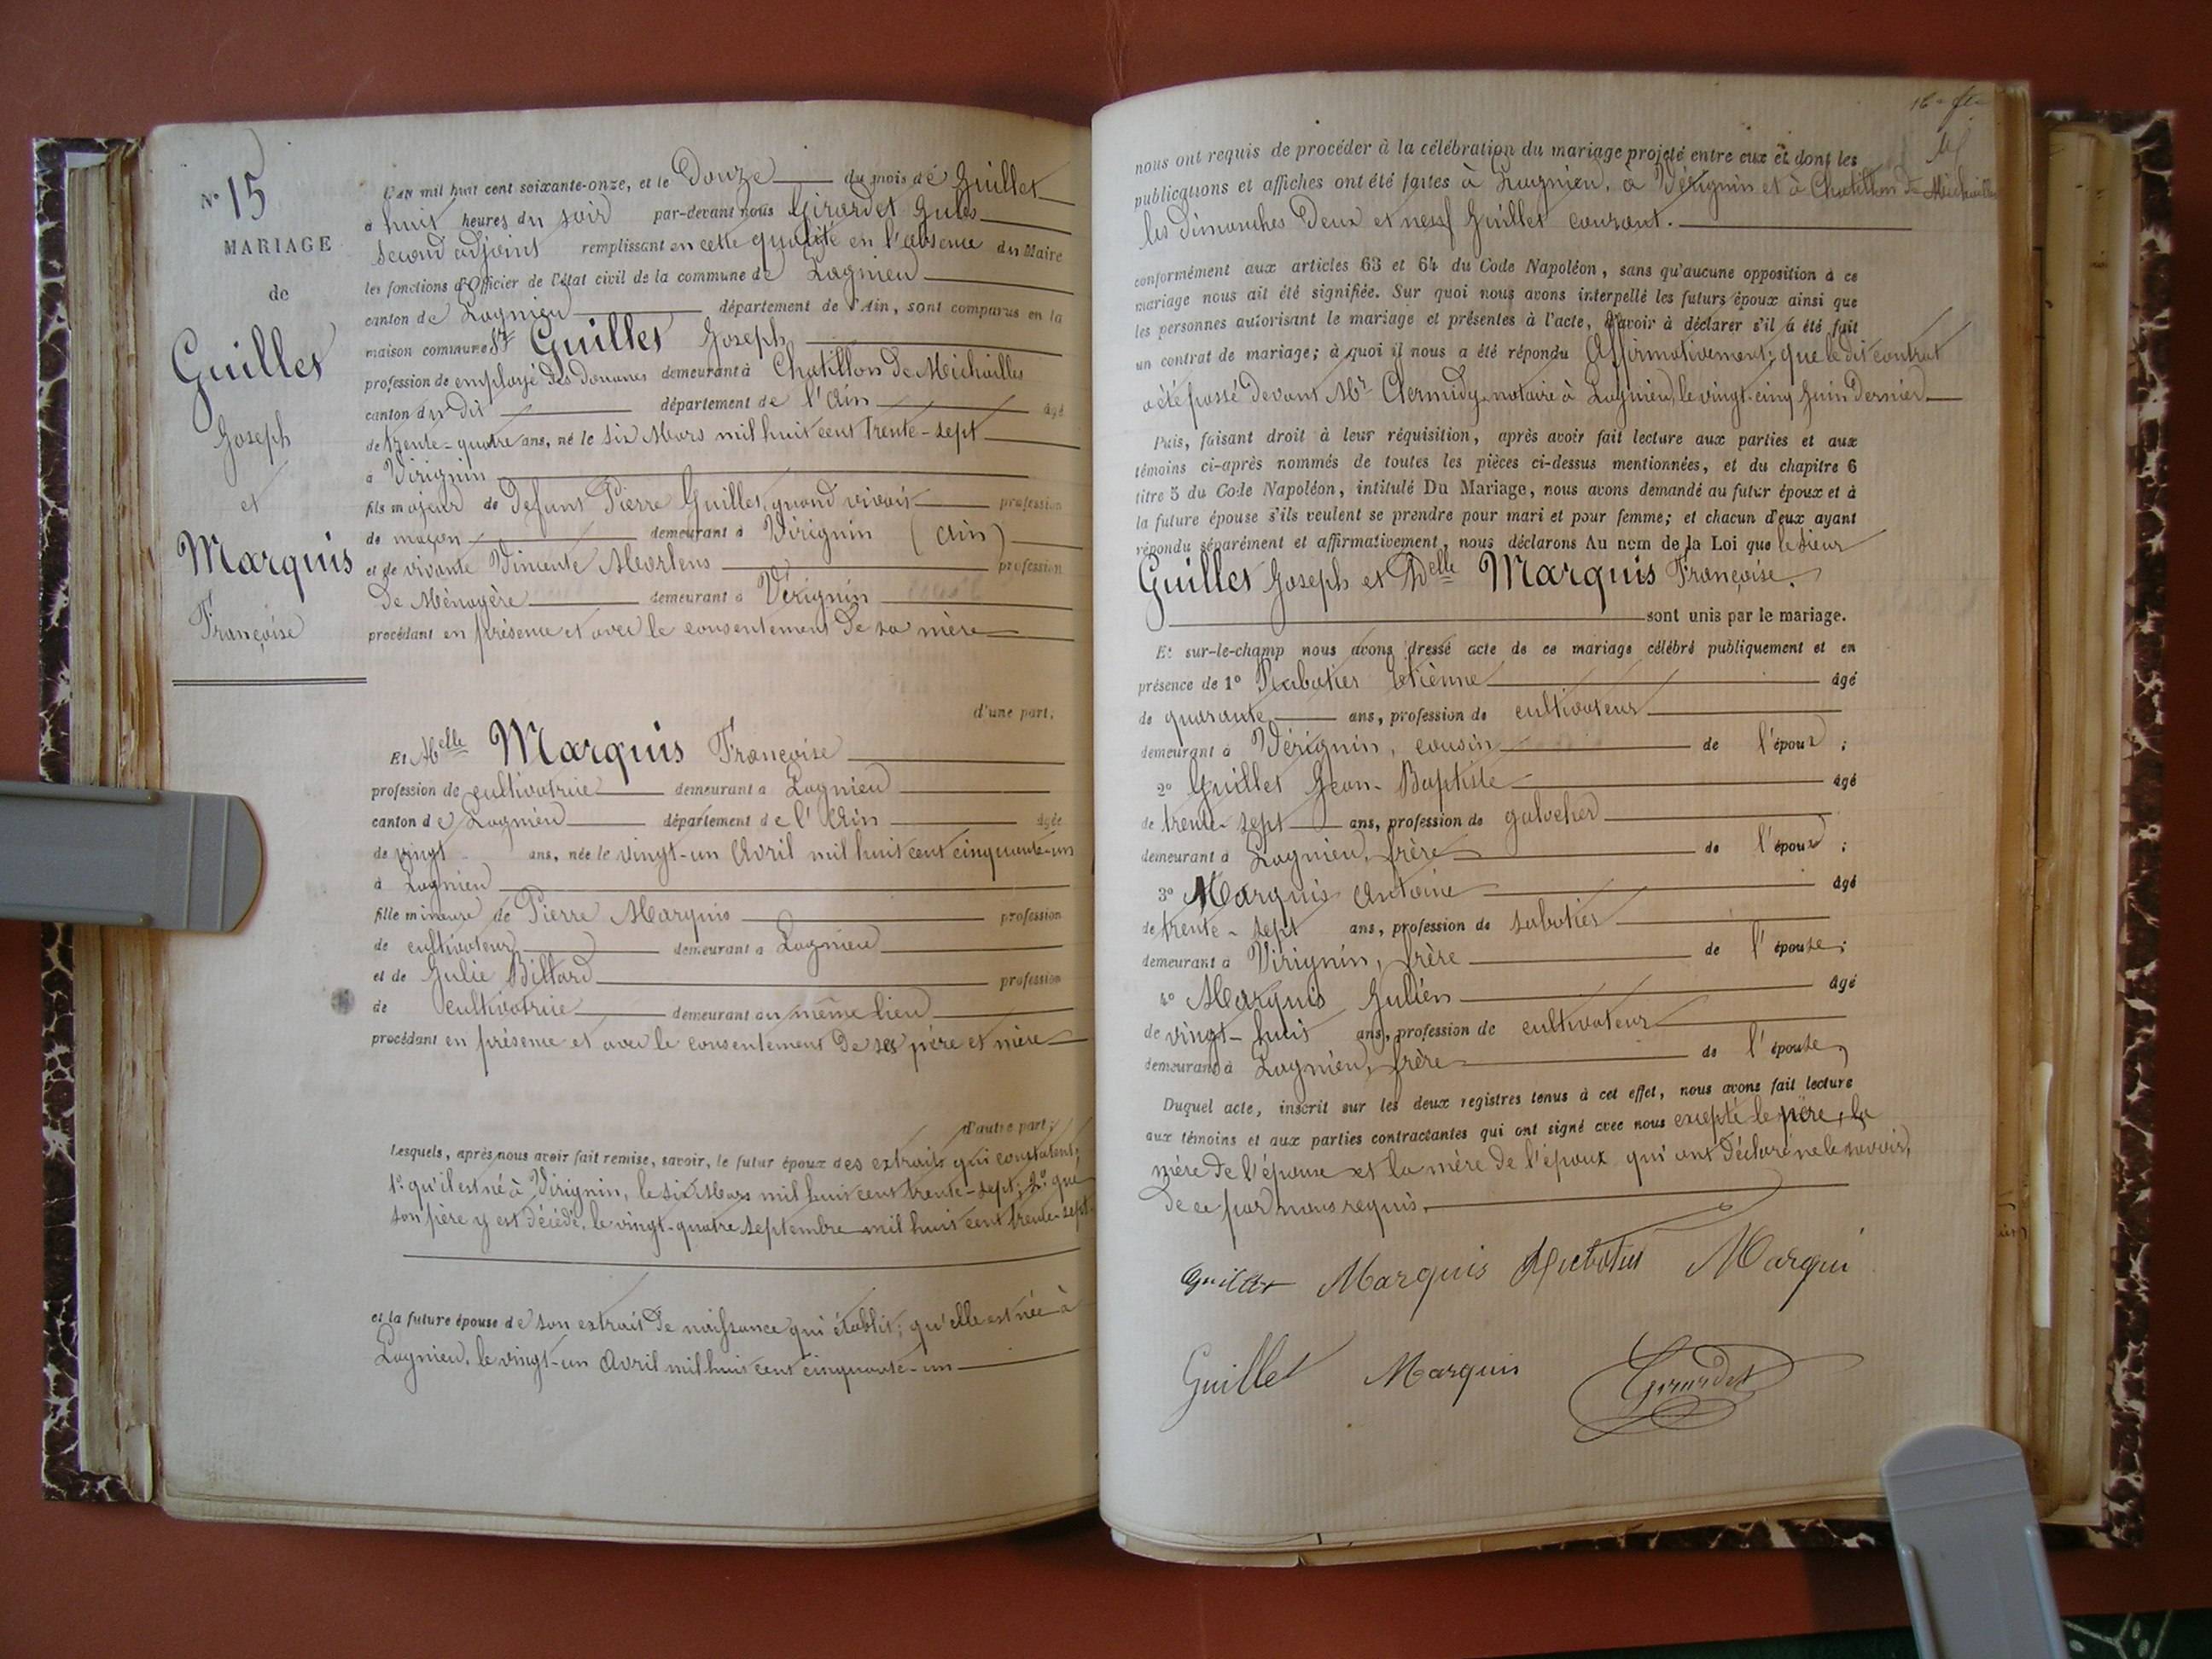 N° 15
MARIAGE
de
Guillet
Joseph
et
Marquis
Françoise
L'an mil huit cent soixante-onze, et le Douze du mois de Juillet
à huit heures du soir par-devant nous Girardet Jules
second adjoint remplissant en cette qualité en l'absence du Maire
les fonctions d'Officier de l'état civil de la commune de Lagnieu
canton de Lagnieu département de l'Ain, sont comparus en la
maison commune Sr Guillet Joseph
profession de employé des douanes demeurant à Chatillon de Michailles
canton du dit département de l'Ain âgé
de trente-quatre ans, né le six Mars mil huit cent trente-sept
à Virignin
fils majeur de défunt Pierre Guillet, quand vivait profession
de maçon demeurant à Virignin (Ain)
et de vivante Vincente Mortens profession
de Ménagère demeurant à Virignin
procédant en présence et avec le consentement de sa mère
d'une part.
Et Melle Marquis Françoise
profession de cultivatrice demeurant à Lagnieu
canton de Lagnieu département de l'Ain âgée
de vingt ans, née le vingt-un Avril mil huit cent cinquante-un
à Lagnieu
fille mineure de Pierre Marquis profession
de cultivateur demeurant à Lagnieu
et de Julie Billard profession
de cultivatrice demeurant au même lieu
procédant en présence et avec le consentement de ses père et mère
d'autre part;
Lesquels, après nous avoir fait remise, savoir, le futur époux des extraits qui constatent;
1° qu'il est né à Virignin, le six Mars mil huit cent trente-sept; 2° que
son père y est décédé, le vingt-quatre septembre mil huit cent trente-sept
et la future épouse de son extrait de naissance qui établit; qu'elle est née à
Lagnieu, le vingt-un Avril mil huit cent cinquante-un
nous ont requis de procéder à la célébration du mariage projeté entre eux et dont les
publications et affiches ont été faites à Lagnieu, à Virignin et à Chatillon de Michailles
les dimanches Deux et neuf Juillet courant.
conformément aux articles 63 et 64 du Code Napoléon, sans qu'aucune opposition à ce
mariage nous ait été signifiée. Sur quoi nous avons interpellé les futurs époux ainsi que
les personnes autorisant le mariage et présentes à l'acte, d'avoir à déclarer s'il a été fait
un contrat de mariage; à quoi il nous a été répondu Affirmativement; que le dit contrat
a été passé devant Mr Clermidy, notaire à Lagnieu, le vingt-cinq Juin dernier.
Puis, faisant droit à leur réquisition, après avoir fait lecture aux parties et aux
témoins ci-après nommés de toutes les pièces ci-dessus mentionnées, et du chapitre 6
titre 5 du Code Napoléon, intitulé Du Mariage, nous avons demandé au futur époux et à
la future épouse s'ils veulent se prendre pour mari et pour femme; et chacun d'eux ayant
répondu séparément et affirmativement, nous déclarons Au nom de la Loi que le sieur
Guillet Joseph et Delle Marquis Françoise.
sont unis par le mariage.
Et sur-le-champ nous avons dressé acte de ce mariage célébré publiquement et en
présence de 1° Rabatier Etienne âgé
de quarante ans, profession de cultivateur
demeurant à Virignin, cousin de l'époux;
2° Guillet Jean-Baptiste âgé
de trente-sept ans, profession de galocher
demeurant à Lagnieu, frère de l'époux;
3° Marquis Antoine âgé
de trente-sept ans, profession de sabotier
demeurant à Virignin, frère de l'épouse;
4° Marquis Julien âgé
de vingt-huit ans, profession de cultivateur
demeurant à Lagnieu, frère de l'épouse,
Duquel acte, inscrit sur les deux registres tenus à cet effet, nous avons fait lecture
aux témoins et aux parties contractantes qui ont signé avec nous excepté le père, la
mère de l'épouse et la mère de l'époux qui ont déclaré ne le savoir,
de ce par nous requis.
Guillet Marquis Marqui
Guillet Marquis Girardet